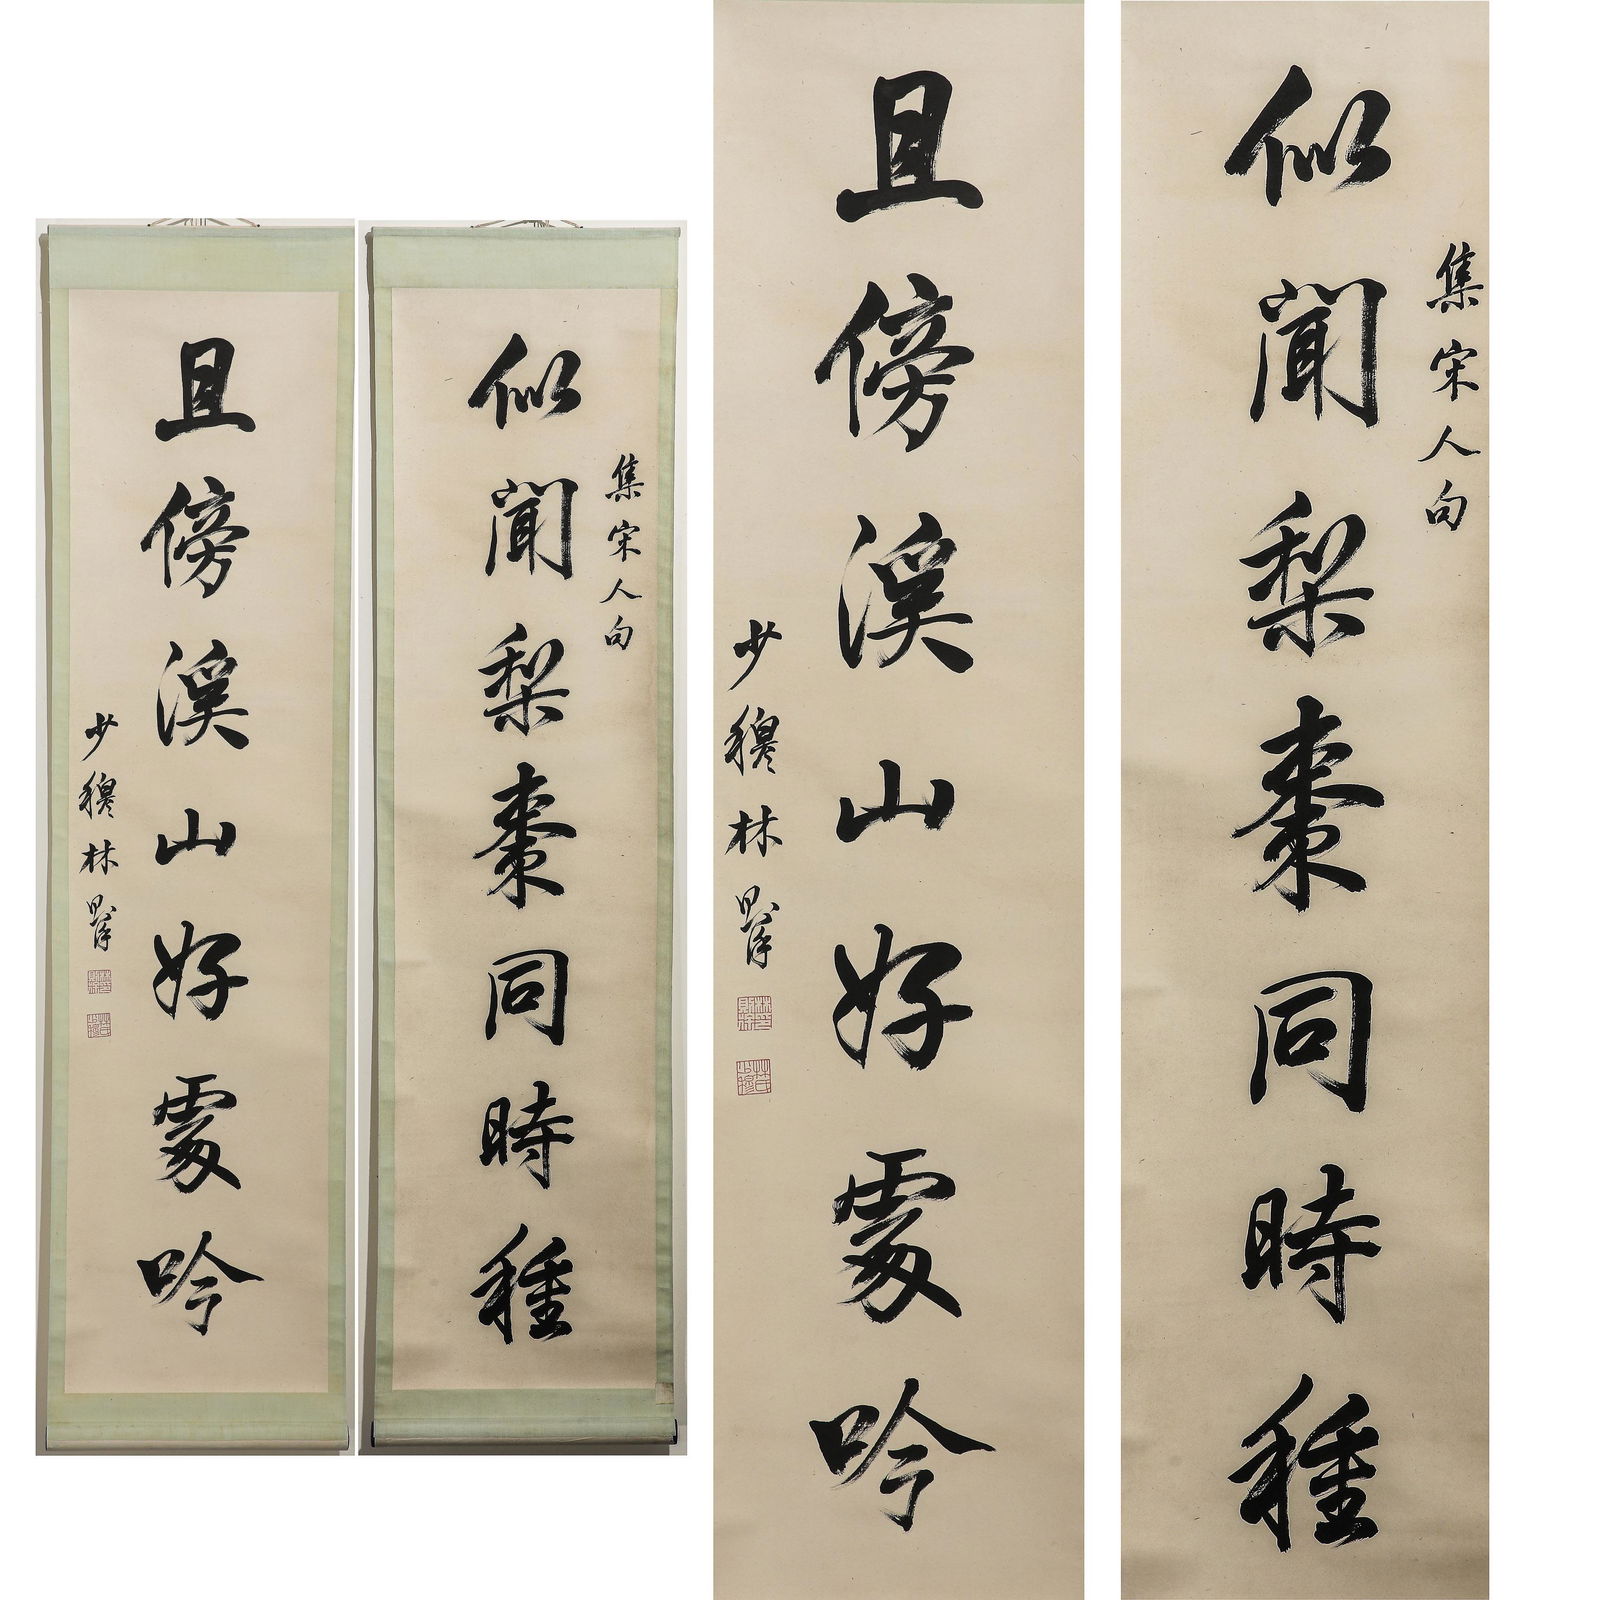 集宋人句
似聞梨棗同時種
且傍溪山好處吟
少穆林則徐
集宋人句
似聞梨棗同時種
且傍溪山好處吟
少穆林則徐